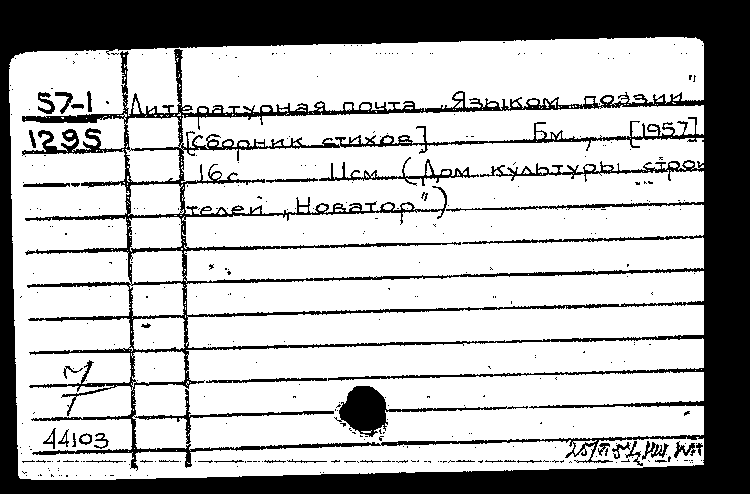 57-1 Литературная почта „Языком поэзии"
1295 [Сборник стихов] Бм., [1957]
16с 11см (Дом культуры строи
телей „Новатор")
7
44103